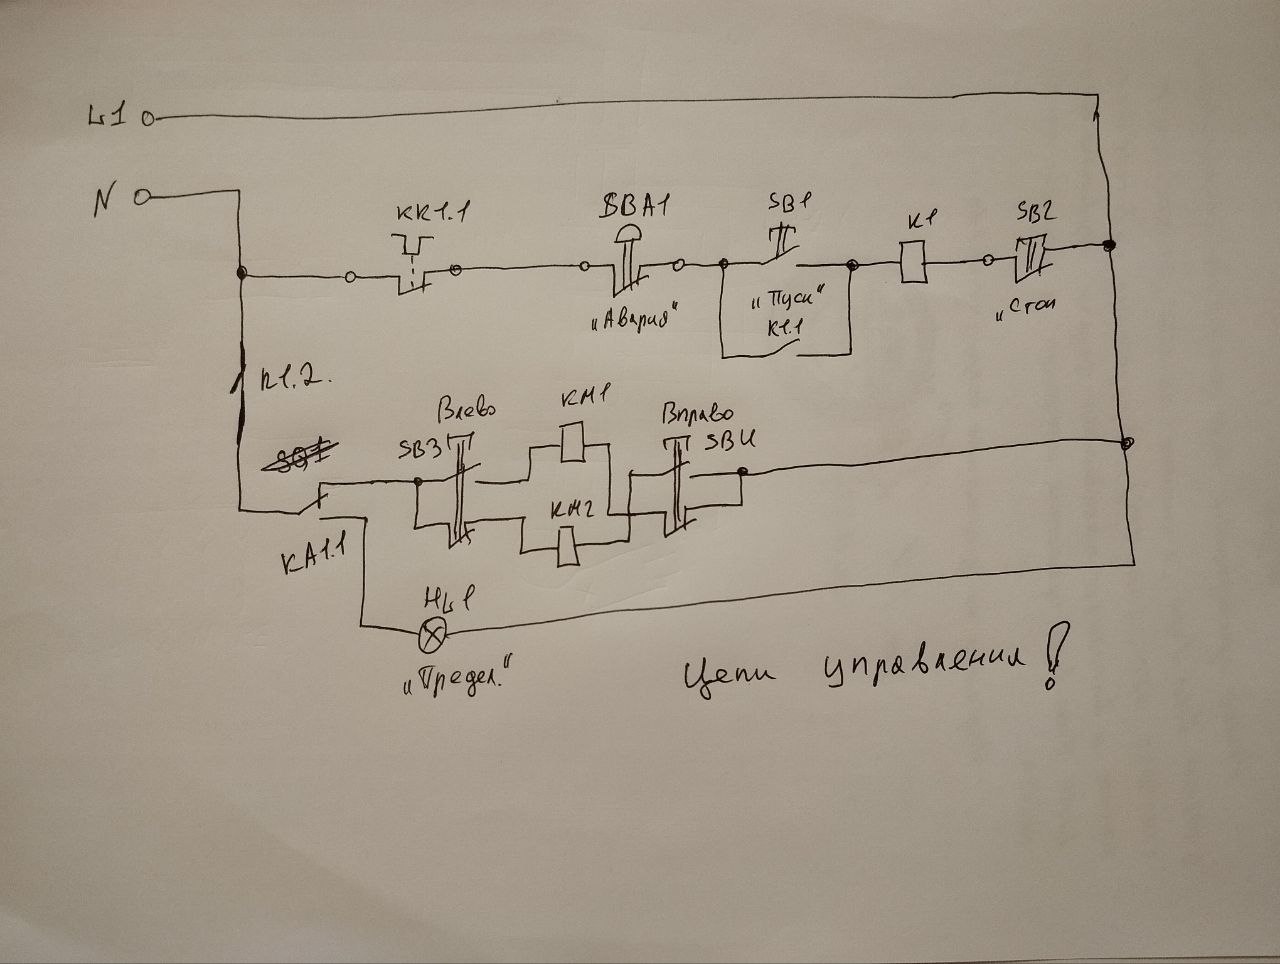 L1
N
KK1.1
SBA1
SB1
K1
SB2
"Авария"
"Пуск"
K1.1
"Стоп
K1.2.
Влево
KM1
Вправо
SB3
SB4
KM2
KA1.1
HL1
"Предел."
Цепи управления!